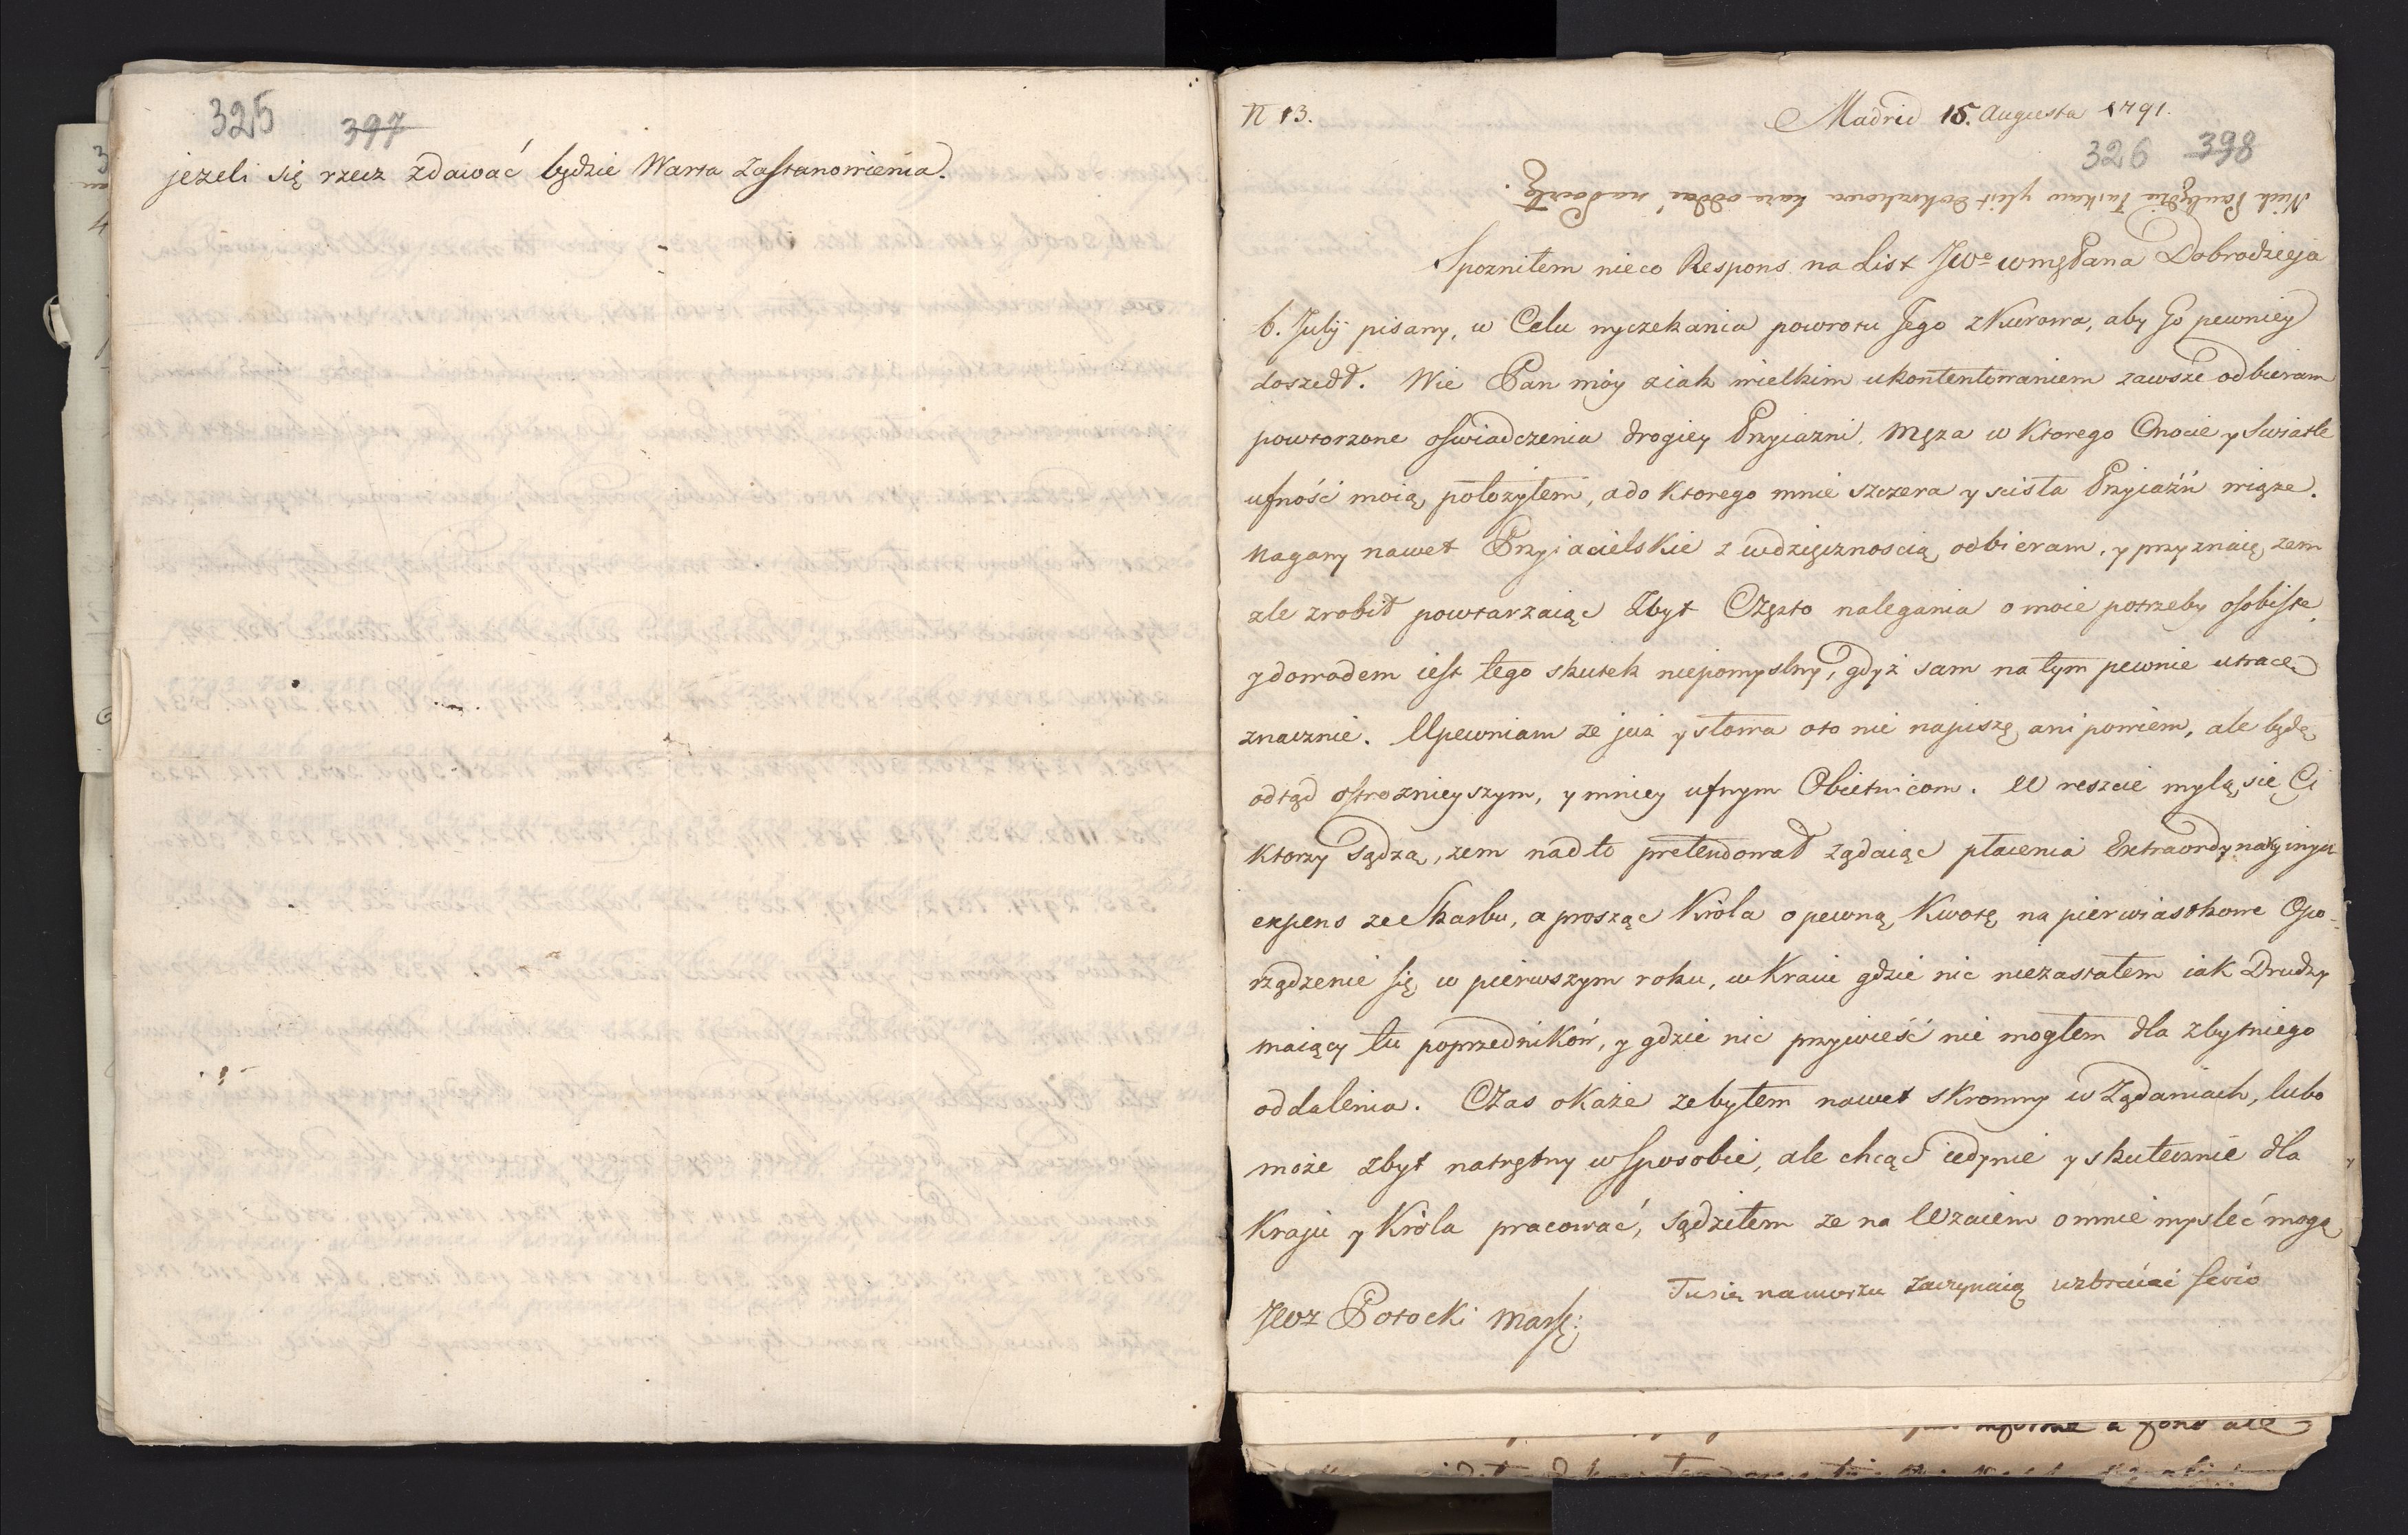 325 397
jezeli się rzecz zdawać będzie Warta Zastanowienia.
N 13.
Madrid 15. Augusta 1791.
326 398
Niech Pan będzie łaskaw y list do Krakowa każe oddać na Pocztę.
Spozniłem nieco Respons na List JWo wmg Pana Dobrodzieja
6. Julij pisany, w Celu wyczekania powrotu Jego z Kurowa, aby Go pewniey
doszedł. Wie Pan móy z iak wielkim ukontentowaniem zawsze odbieram
powtorzone oswiadczenia drogiey Przyiazni, Męza w Ktorego Cnocie y Swiatle
ufność moią położyłem, a do Ktorego mnie szczera y scisła Przyiaźń wiąze.
Nagany nawet Przyiacielskie z wdzięcznoscią odbieram, y przyznaię zem
zle zrobił powtarzaiąc Zbyt Często nalegania o moie potrzeby osobiste,
y dowodem iest tego skutek niepomyslny, gdyż sam na tym pewnie utracę
znacznie. Upewniam ze już y słowa o to nie napiszę, ani powiem, ale będę
odtąd ostroznieyszym, y mniey ufnym Obietnicom. W reszcie mylą się Ci
Ktorzy Sądzą, zem nadto pretendował ządaiąc płacenia Extraordynaryinych
expens ze Skarbu, a prosząc Króla o pewną Kwotę na pierwiastkowe Opo-
rządzenie się w pierwszym roku, w Kraiu gdzie nic niezastałem iak Drudzy
maiący tu poprzedników, y gdzie nic przywieść nie mogłem dla zbytniego
oddalenia. Czas okaże ze byłem nawet skromny w Ządaniach, lubo
może zbyt natrętny w Sposobie, ale chcąc iedynie y skutecznie dla
Kraju y Króla pracować, Sądziłem ze na Wzaiem o mnie mysleć mogą
Tu się na morzu zaczynaią uzbraiać serio
JWz Potocki Marsz: